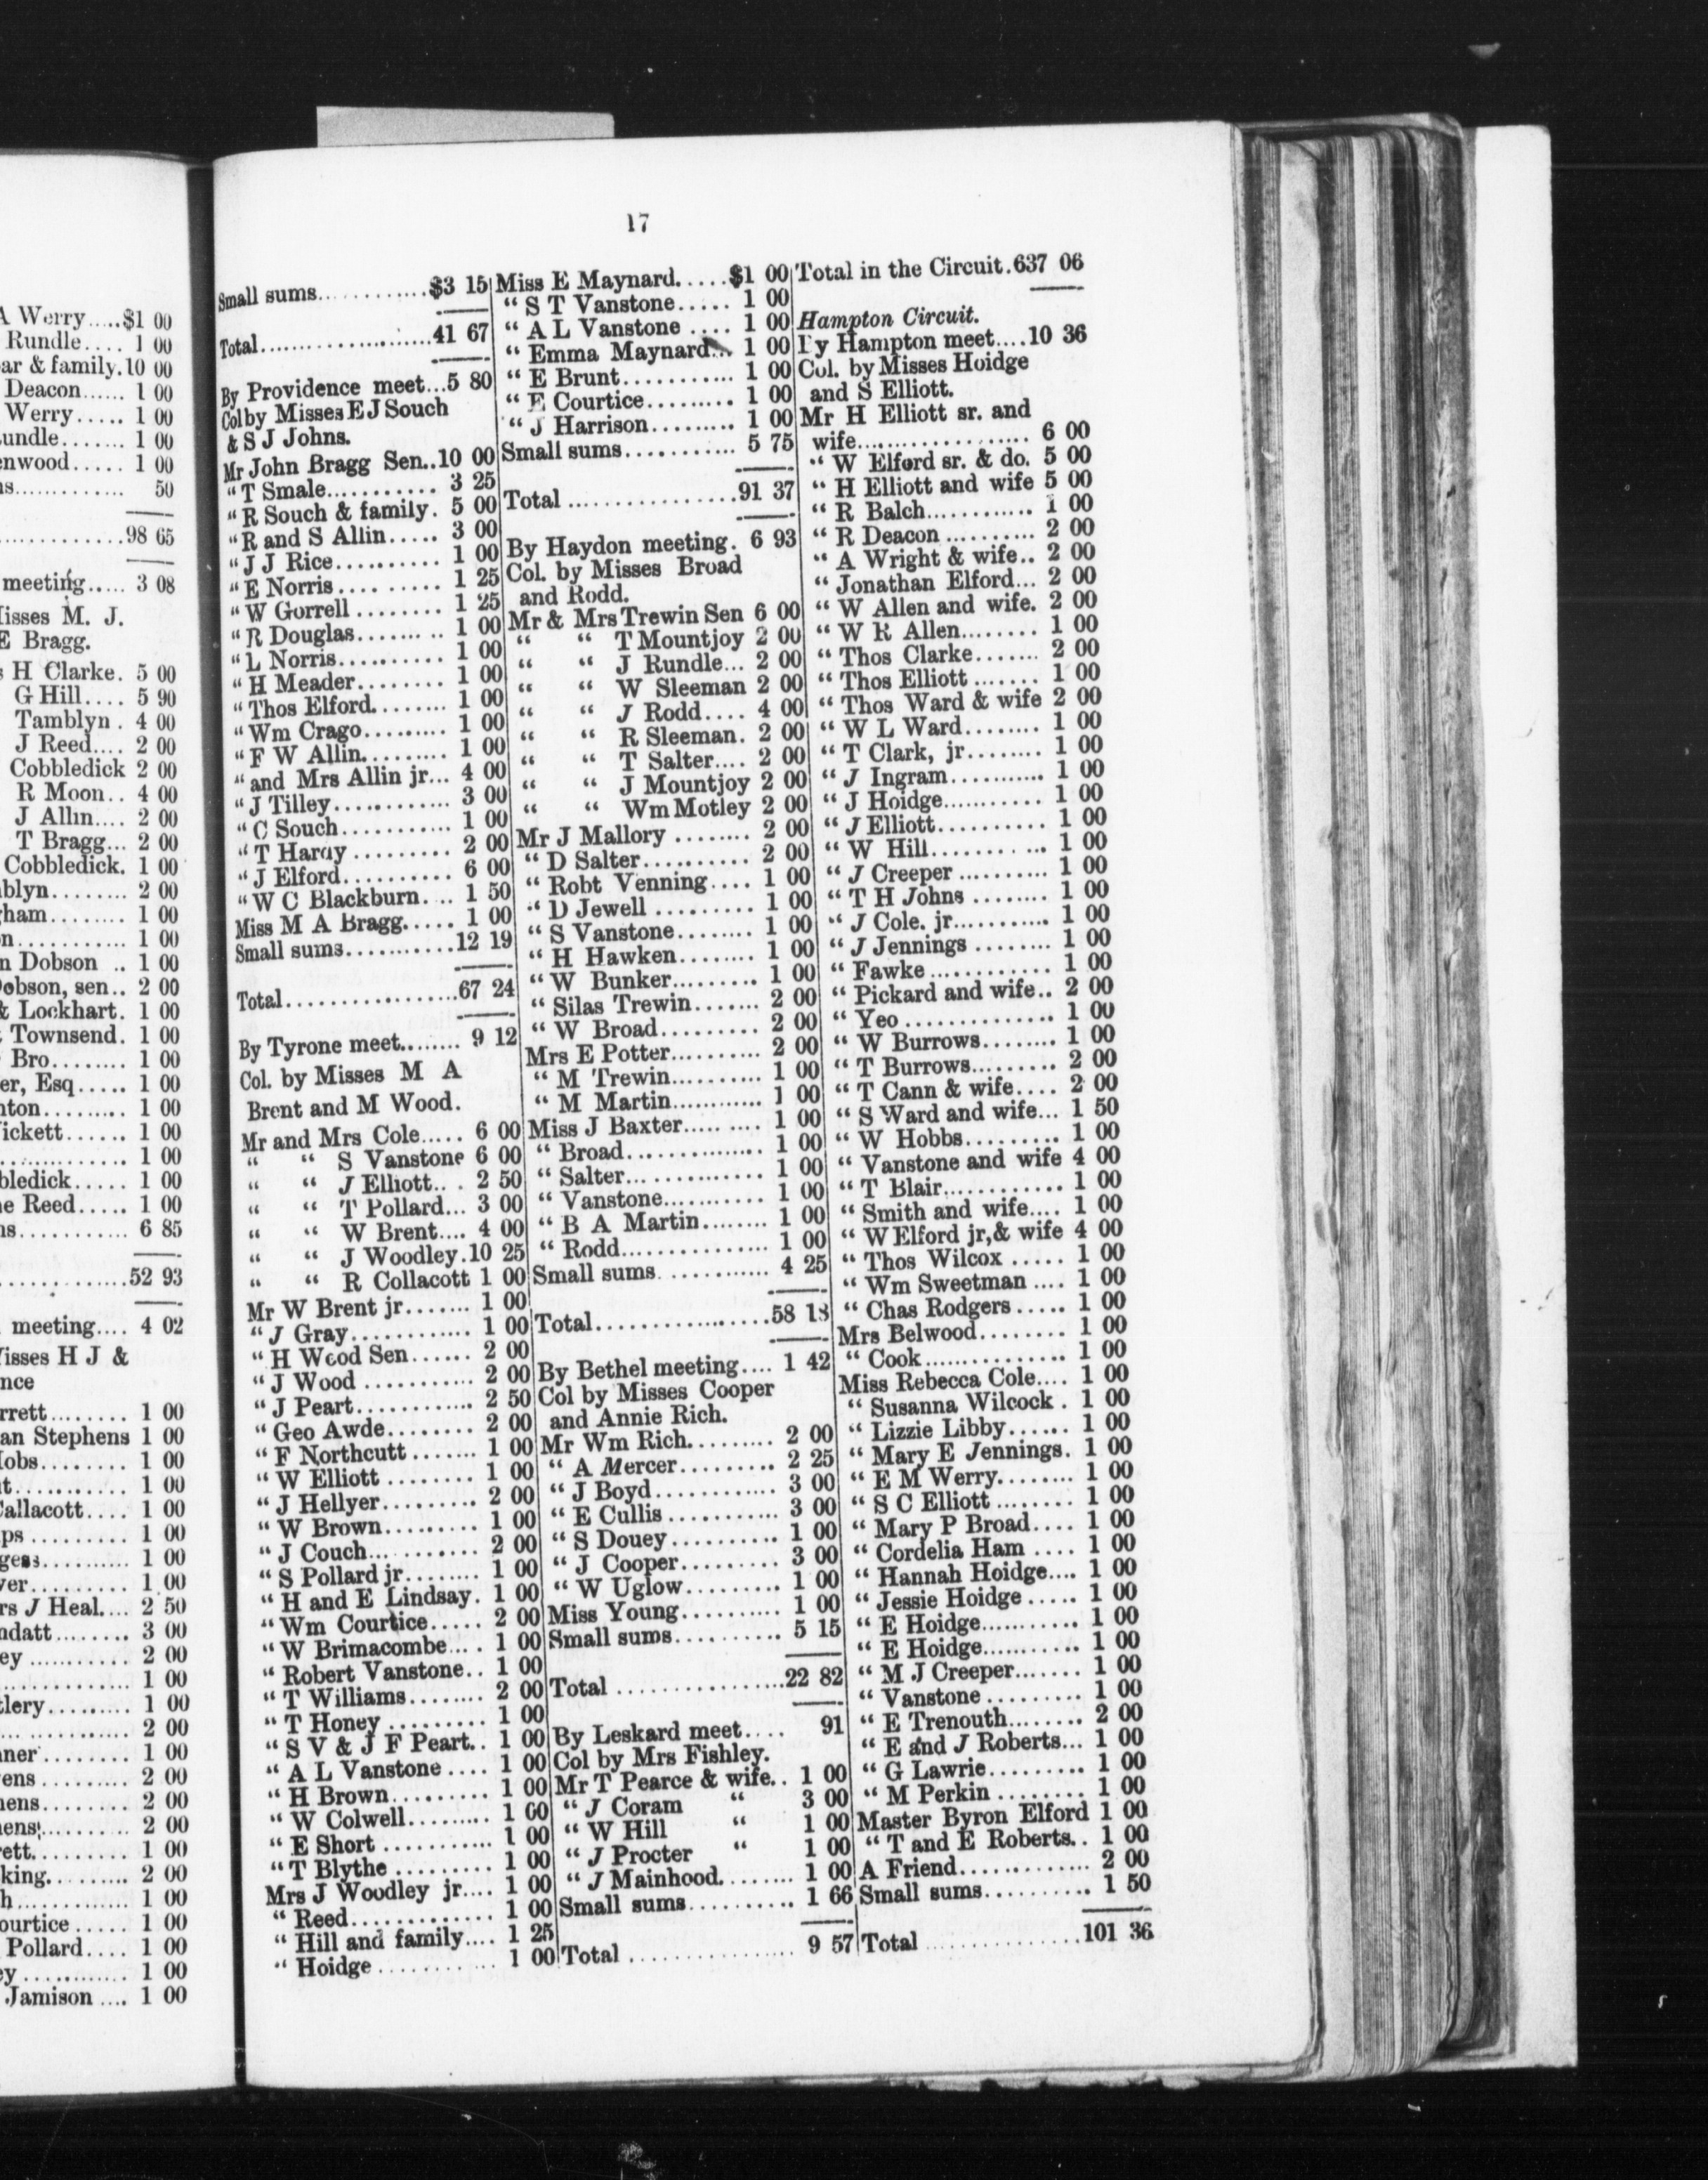 A Werry.....$1 00
Rundle.... 1 00
ar & family.10 00
Deacon...... 1 00
Werry..... 1 00
undle....... 1 00
enwood..... 1 00
s............. 50
.............98 65
meeting..... 3 08
isses M. J.
E Bragg.
H Clarke. 5 00
G Hill.... 5 90
Tamblyn . 4 00
J Reed.... 2 00
Cobbledick 2 00
R Moon.. 4 00
J Allin.... 2 00
T Bragg... 2 00
Cobbledick. 1 00
blyn........ 2 00
ham........ 1 00
n........... 1 00
n Dobson .. 1 00
obson, sen.. 2 00
& Lockhart. 1 00
Townsend. 1 00
Bro........ 1 00
er, Esq..... 1 00
nton......... 1 00
ickett...... 1 00
.............. 1 00
bledick..... 1 00
e Reed..... 1 00
s............ 6 85
.............52 93
meeting.... 4 02
isses H J &
nce
rrett........ 1 00
an Stephens 1 00
obs........ 1 00
t............ 1 00
allacott.... 1 00
ps.......... 1 00
gess.......... 1 00
ver.......... 1 00
rs J Heal.... 2 50
ndatt........ 3 00
ey........... 2 00
.............. 1 00
tlery......... 1 00
.............. 2 00
ner........ 1 00
ens......... 2 00
ens........ 2 00
ens.......... 2 00
ett.......... 1 00
king......... 2 00
h............. 1 00
ourtice ..... 1 00
Pollard.... 1 00
ey............ 1 00
Jamison .... 1 00
17
Small sums............$3 15
Total...................41 67
By Providence meet...5 80
Col by Misses E J Souch
& S J Johns.
Mr John Bragg Sen..10 00
" T Smale........... 3 25
" R Souch & family. 5 00
" R and S Allin..... 3 00
" J J Rice.......... 1 00
" E Norris.......... 1 25
" W Gorrell ........ 1 25
" R Douglas......... 1 00
" L Norris.......... 1 00
" H Meader........ 1 00
" Thos Elford........ 1 00
" Wm Crago......... 1 00
" F W Allin......... 1 00
" and Mrs Allin jr... 4 00
" J Tilley............ 3 00
" C Souch........... 1 00
" T Hardy .......... 2 00
" J Elford.......... 6 00
" W C Blackburn.... 1 50
Miss M A Bragg..... 1 00
Small sums...........12 19
Total.................67 24
By Tyrone meet........ 9 12
Col. by Misses M A
Brent and M Wood.
Mr and Mrs Cole..... 6 00
" " S Vanstone 6 00
" " J Elliott... 2 50
" " T Pollard... 3 00
" " W Brent.... 4 00
" " J Woodley.10 25
" " R Collacott 1 00
Mr W Brent jr....... 1 00
" J Gray............ 1 00
" H Wood Sen...... 2 00
" J Wood ........... 2 00
" J Peart............ 2 50
" Geo Awde......... 2 00
" F Northcutt ....... 1 00
" W Elliott ........ 1 00
" J Hellyer......... 2 00
" W Brown......... 1 00
" J Couch........... 2 00
" S Pollard jr........ 1 00
" H and E Lindsay. 1 00
" Wm Courtice..... 2 00
" W Brimacombe.... 1 00
" Robert Vanstone.. 1 00
" T Williams........ 2 00
" T Honey ......... 1 00
" S V & J F Peart.. 1 00
" A L Vanstone .... 1 00
" H Brown.......... 1 00
" W Colwell........ 1 00
" E Short ........... 1 00
" T Blythe .......... 1 00
Mrs J Woodley jr.... 1 00
" Reed.............. 1 00
" Hill and family.... 1 25
" Hoidge ............ 1 00
Miss E Maynard.....$1 00
" S T Vanstone..... 1 00
" A L Vanstone .... 1 00
" Emma Maynard... 1 00
" E Brunt........... 1 00
" E Courtice......... 1 00
" J Harrison......... 1 00
Small sums........... 5 75
Total .................91 37
By Haydon meeting. 6 93
Col. by Misses Broad
and Rodd.
Mr & Mrs Trewin Sen 6 00
" " T Mountjoy 2 00
" " J Rundle... 2 00
" " W Sleeman 2 00
" " J Rodd.... 4 00
" " R Sleeman. 2 00
" " T Salter.... 2 00
" " J Mountjoy 2 00
" " Wm Motley 2 00
Mr J Mallory ........ 2 00
" D Salter........... 2 00
" Robt Venning.... 1 00
" D Jewell ......... 1 00
" S Vanstone........ 1 00
" H Hawken........ 1 00
" W Bunker......... 1 00
" Silas Trewin....... 2 00
" W Broad.......... 2 00
Mrs E Potter.......... 2 00
" M Trewin.......... 1 00
" M Martin........... 1 00
Miss J Baxter......... 1 00
" Broad.............. 1 00
" Salter.............. 1 00
" Vanstone........... 1 00
" B A Martin........ 1 00
" Rodd............... 1 00
Small sums............ 4 25
Total...................58 18
By Bethel meeting.... 1 42
Col by Misses Cooper
and Annie Rich.
Mr Wm Rich.......... 2 00
" A Mercer.......... 2 25
" J Boyd............ 3 00
" E Cullis ........... 3 00
" S Douey........... 1 00
" J Cooper.......... 3 00
" W Uglow.......... 1 00
Miss Young.......... 1 00
Small sums........... 5 15
Total .................22 82
By Leskard meet.... 91
Col by Mrs Fishley.
Mr T Pearce & wife.. 1 00
" J Coram " 3 00
" W Hill " 1 00
" J Procter " 1 00
" J Mainhood........ 1 00
Small sums........... 1 66
Total .................. 9 57
Total in the Circuit.637 06
Hampton Circuit.
By Hampton meet....10 36
Col. by Misses Hoidge
and S Elliott.
Mr H Elliott sr. and
wife................... 6 00
" W Elford sr. & do. 5 00
" H Elliott and wife 5 00
" R Balch............ 1 00
" R Deacon .......... 2 00
" A Wright & wife.. 2 00
" Jonathan Elford... 2 00
" W Allen and wife. 2 00
" W R Allen........ 1 00
" Thos Clarke....... 2 00
" Thos Elliott ....... 1 00
" Thos Ward & wife 2 00
" W L Ward........ 1 00
" T Clark, jr........ 1 00
" J Ingram........... 1 00
" J Hoidge........... 1 00
" J Elliott.......... 1 00
" W Hill............ 1 00
" J Creeper .......... 1 00
" T H Johns ........ 1 00
" J Cole. jr.......... 1 00
" J Jennings ........ 1 00
" Fawke ............ 1 00
" Pickard and wife.. 2 00
" Yeo ............... 1 00
" W Burrows........ 1 00
" T Burrows......... 2 00
" T Cann & wife.... 2 00
" S Ward and wife... 1 50
" W Hobbs.......... 1 00
" Vanstone and wife 4 00
" T Blair............ 1 00
" Smith and wife.... 1 00
" W Elford jr,& wife 4 00
" Thos Wilcox ..... 1 00
" Wm Sweetman .... 1 00
" Chas Rodgers..... 1 00
Mrs Belwood......... 1 00
" Cook............... 1 00
Miss Rebecca Cole.... 1 00
" Susanna Wilcock . 1 00
" Lizzie Libby...... 1 00
" Mary E Jennings. 1 00
" E M Werry........ 1 00
" S C Elliott ........ 1 00
" Mary P Broad.... 1 00
" Cordelia Ham .... 1 00
" Hannah Hoidge.... 1 00
" Jessie Hoidge ..... 1 00
" E Hoidge........... 1 00
" E Hoidge........... 1 00
" M J Creeper....... 1 00
" Vanstone .......... 1 00
" E Trenouth........ 2 00
" E and J Roberts... 1 00
" G Lawrie.......... 1 00
" M Perkin ......... 1 00
Master Byron Elford 1 00
" T and E Roberts.. 1 00
A Friend.............. 2 00
Small sums........... 1 50
Total .................101 36